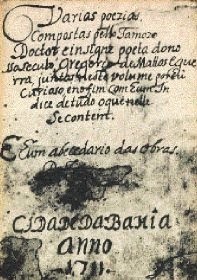 Varias poezias
Compostas pello famozo
Doctor e insigne poeta do no
sso seculo Gregorio de Mattos E gue
rra, juntas neste volume por hū
Curiozo, e no fim com Eum In
dice de tudo o que nelle
Se contem.
E Eum abecedario das obras
CIDADE DA BAHIA
ANNO
1711.